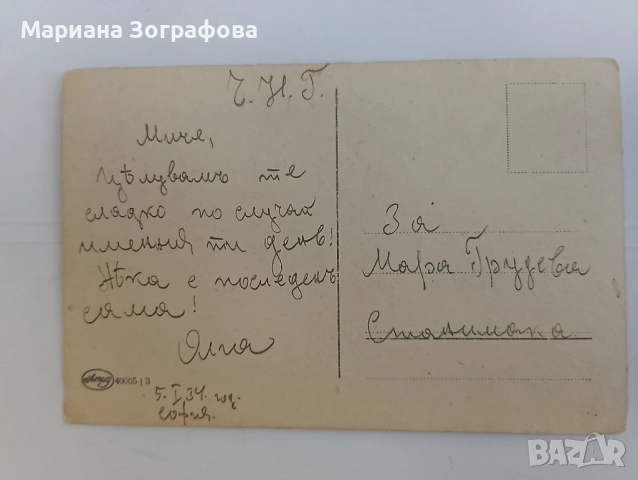 Мариана Зографова
Ч. Н. Г.
Миче,
Цѣлувамъ те
сладко по случай
имения ти день!
Нѣка е последенъ
сама!
Олга
40065 | 3
5. I 34. год.
София.
За
Мара Грудева
Станимака
BAZAR